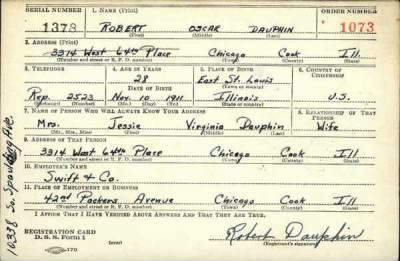 SERIAL NUMBER 1. NAME (Print) ORDER NUMBER
1378 ROBERT OSCAR DAUPHIN 1073
(First) (Middle) (Last)
2. ADDRESS (Print)
3314 West 64th Place Chicago Cook Ill.
(Number and street or R. F. D. number) (Town) (County) (State)
3. TELEPHONE 4. AGE IN YEARS 5. PLACE OF BIRTH 6. COUNTRY OF CITIZENSHIP
28 East St. Louis
DATE OF BIRTH (Town or county)
Rep. 2523 Nov. 10 1911 Illinois U.S.
(Exchange) (Number) (Mo.) (Day) (Yr.) (State or country)
7. NAME OF PERSON WHO WILL ALWAYS KNOW YOUR ADDRESS 8. RELATIONSHIP OF THAT PERSON
Mrs. Jessie Virginia Dauphin Wife
(Mr., Mrs., Miss) (First) (Middle) (Last)
9. ADDRESS OF THAT PERSON
3314 West 64th Place Chicago Cook Ill
(Number and street or R. F. D. number) (Town) (County) (State)
10. EMPLOYER'S NAME
Swift & Co.
11. PLACE OF EMPLOYMENT OR BUSINESS
42nd Packers Avenue Chicago Cook Ill
(Number and street or R. F. D. number) (Town) (County) (State)
I AFFIRM THAT I HAVE VERIFIED ABOVE ANSWERS AND THAT THEY ARE TRUE.
REGISTRATION CARD
D. S. S. Form 1 (over) Robert Dauphin
(Registrant's signature)
10338 So. Spaulding Ave.